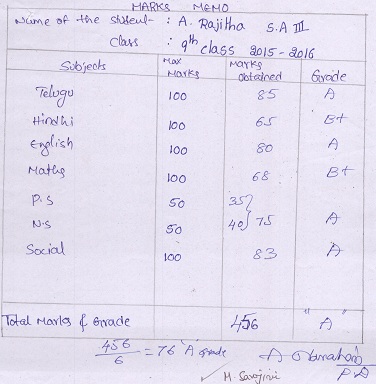 MARKS MEMO
Name of the student- : A. Rajitha S.A III
Class : 9th class 2015-2016
Subjects Max Marks Marks obtained Grade
Telugu 100 85 A
Hindhi 100 65 B+
English 100 80 A
Maths 100 68 B+
P.S 50 35
N.S 50 40 } 75 A
Social 100 83 A
Total Marks & Grade 456 "A"
456/6 = 76 'A' grade
M. Sarojini